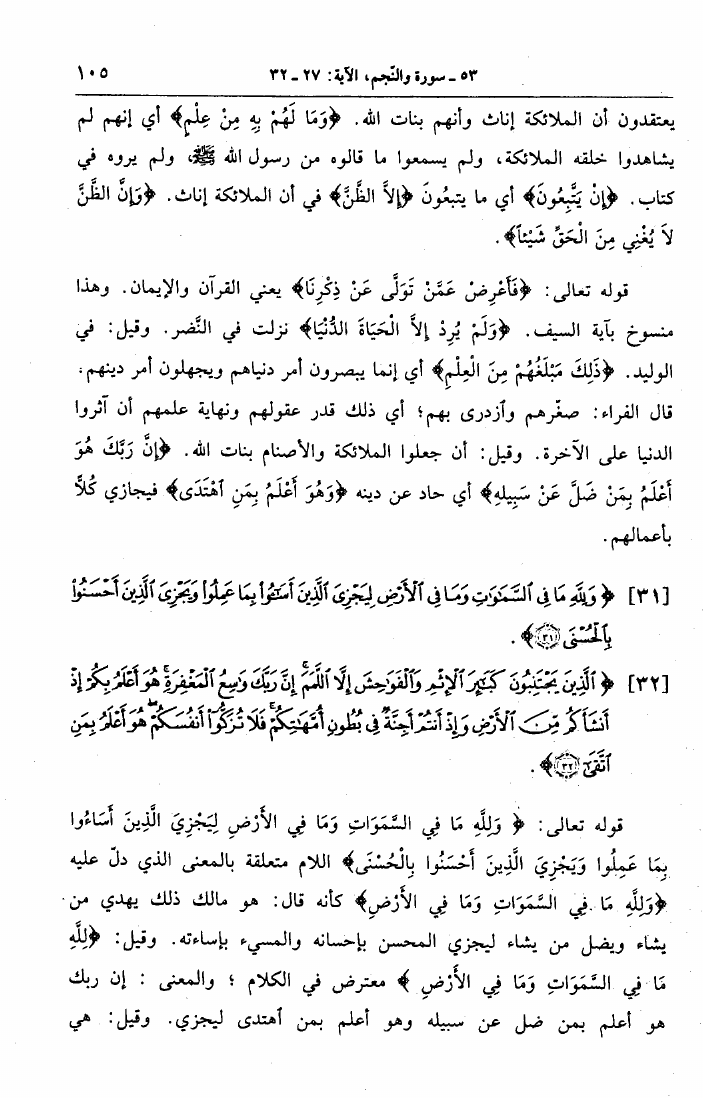 ٥٣ ـ سورة والنّجم، الآية: ٢٧ ـ ٣٢ ١٠٥
يعتقدون أن الملائكة إناث وأنهم بنات الله. ﴿وَمَا لَهُمْ بِهِ مِنْ عِلْمٍ﴾ أي إنهم لم
يشاهدوا خلقه الملائكة، ولم يسمعوا ما قالوه من رسول الله ﷺ، ولم يروه في
كتاب. ﴿إِنْ يَتَّبِعُونَ﴾ أي ما يتبعُونَ ﴿إِلاَّ الظَّنَّ﴾ في أن الملائكة إناث. ﴿وَإِنَّ الظَّنَّ
لاَ يُغْنِي مِنَ الْحَقِّ شَيْئاً﴾.
قوله تعالى: ﴿فَأَعْرِضْ عَمَّنْ تَوَلَّى عَنْ ذِكْرِنَا﴾ يعني القرآن والإيمان. وهذا
منسوخ بآية السيف. ﴿وَلَمْ يُرِدْ إِلاَّ الْحَيَاةَ الدُّنْيَا﴾ نزلت في النَّضر. وقيل: في
الوليد. ﴿ذَلِكَ مَبْلَغُهُمْ مِنَ الْعِلْمِ﴾ أي إنما يبصرون أمر دنياهم ويجهلون أمر دينهم.
قال الفراء: صغّرهم وٱزدرى بهم؛ أي ذلك قدر عقولهم ونهاية علمهم أن آثروا
الدنيا على الآخرة. وقيل: أن جعلوا الملائكة والأصنام بنات الله. ﴿إِنَّ رَبَّكَ هُوَ
أَعْلَمُ بِمَنْ ضَلَّ عَنْ سَبِيلِهِ﴾ أي حاد عن دينه ﴿وَهُوَ أَعْلَمُ بِمَنِ ٱهْتَدَى﴾ فيجازي كُلاًّ
بأعمالهم.
[٣١] ﴿وَلِلَّهِ مَا فِي ٱلسَّمَٰوَٰتِ وَمَا فِي ٱلْأَرْضِ لِيَجْزِيَ ٱلَّذِينَ أَسَٰٓـُٔوا۟ بِمَا عَمِلُوا۟ وَيَجْزِيَ ٱلَّذِينَ أَحْسَنُوا۟
بِٱلْحُسْنَى ۝٣١﴾.
[٣٢] ﴿ٱلَّذِينَ يَجْتَنِبُونَ كَبَٰٓئِرَ ٱلْإِثْمِ وَٱلْفَوَٰحِشَ إِلَّا ٱللَّمَمَ إِنَّ رَبَّكَ وَٰسِعُ ٱلْمَغْفِرَةِ هُوَ أَعْلَمُ بِكُمْ إِذْ
أَنشَأَكُم مِّنَ ٱلْأَرْضِ وَإِذْ أَنتُمْ أَجِنَّةٌ فِي بُطُونِ أُمَّهَٰتِكُمْ فَلَا تُزَكُّوٓا۟ أَنفُسَكُمْ هُوَ أَعْلَمُ بِمَنِ
ٱتَّقَىٰٓ ۝٣٢﴾.
قوله تعالى: ﴿وَلِلَّهِ مَا فِي السَّمَوَاتِ وَمَا فِي الأَرْضِ لِيَجْزِيَ الَّذِينَ أَسَاءُوا
بِمَا عَمِلُوا وَيَجْزِيَ الَّذِينَ أَحْسَنُوا بِالْحُسْنَى﴾ اللام متعلقة بالمعنى الذي دلّ عليه
﴿وَلِلَّهِ مَا فِي السَّمَوَاتِ وَمَا فِي الأَرْضِ﴾ كأنه قال: هو مالك ذلك يهدي من
يشاء ويضل من يشاء ليجزي المحسن بإحسانه والمسيء بإساءته. وقيل: ﴿لِلَّهِ
مَا فِي السَّمَوَاتِ وَمَا فِي الأَرْضِ﴾ معترض في الكلام ؛ والمعنى : إن ربك
هو أعلم بمن ضل عن سبيله وهو أعلم بمن ٱهتدى ليجزي. وقيل: هي